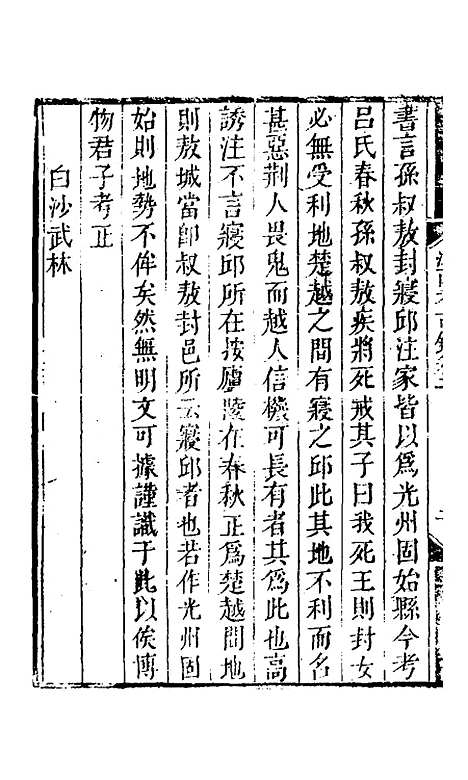 書言孫叔敖封寢邱注家皆以爲光州固始縣今考
呂氏春秋孫叔敖疾將死戒其子曰我死王則封女
必無受利地楚越之間有寢之邱此其地不利而名
甚惡荆人畏鬼而越人信禨可長有者其爲此也高
誘注不言寢邱所在按廬陵在春秋正爲楚越間地
則敖城當卽叔敖封邑所云寢邱者也若作光州固
始則地勢不侔矣然無明文可據謹識于此以俟博
物君子考正
白沙武林